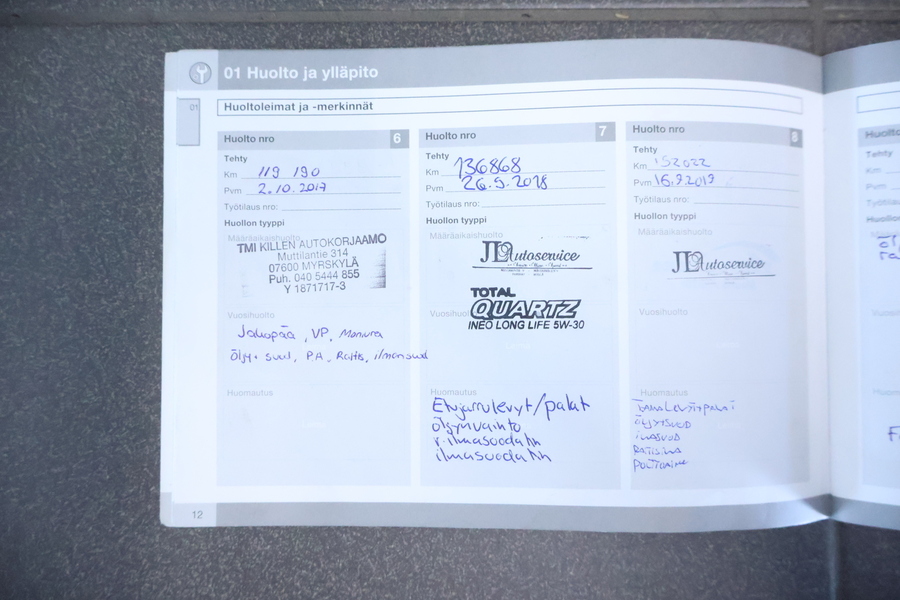 01 Huolto ja ylläpito
01
Huoltoleimat ja -merkinnät
Huolto nro 6
Tehty
Km 119 190
Pvm 2.10.2017
Työtilaus nro:
Huollon tyyppi
Määräaikaishuolto
TMI KILLEN AUTOKORJAAMO
Muttilantie 314
07600 MYRSKYLÄ
Puh. 040 5444 855
Y 1871717-3
Vuosihuolto
Jakopää, VP,
öljy + suod, P.A, Raitis, ilman suod
Huomautus
12
Huolto nro 7
Tehty
Km 136868
Pvm 26.9.2018
Työtilaus nro:
Huollon tyyppi
Määräaikaishuolto
JL Autoservice
TOTAL
QUARTZ
INEO LONG LIFE 5W-30
Vuosihuol
Huomautus
Etujarrulevyt/palat
öljynvaihto
r.ilmasuodatin
ilmasuodatin
Huolto nro 8
Tehty
Km 152022
Pvm 16.9.2019
Työtilaus nro:
Huollon tyyppi
Määräaikaishuolto
JL Autoservice
Vuosihuolto
Huomautus
ÖLJY+SUOD
RAITISILMA
POLTTOAINE
Huolto
Tehty
Km
Pvm
Työtilau
Huollon
Vuosihuo
Huomaut